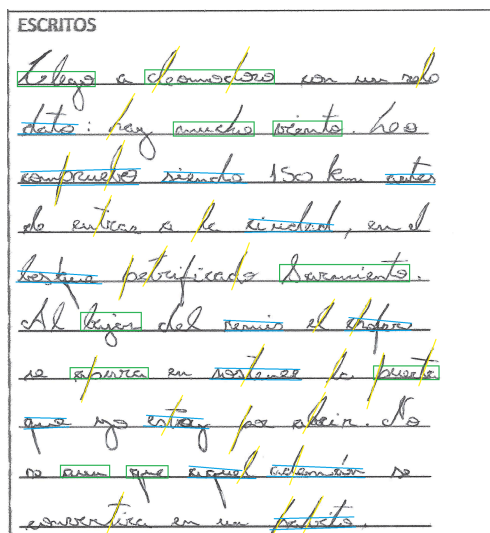 ESCRITOS
Llego a Comodoro con un solo
dato: hay mucho viento. Leo
compruebo siendo 150 km antes
de entrar a la ciudad, en el
bosque petrificado Sarmiento.
Al bajar del remis el chofer
se esmera en sostener la puerta
que yo estoy por abrir. No
se aun que aquel ademán se
convertira en un habito.